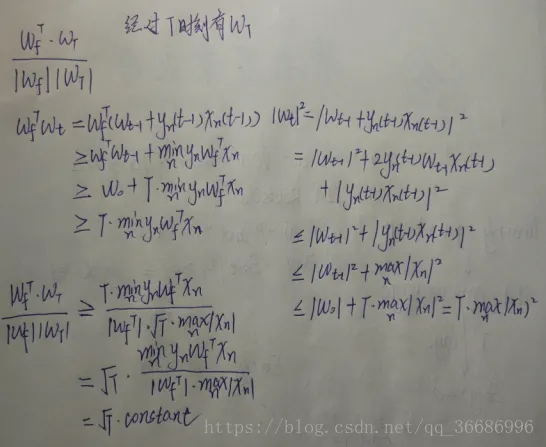 经过T时刻有W_T
W_f^T·W_T / |W_f||W_T|
W_f^T W_t = W_f^T(W_{t-1} + y_n(t-1)X_n(t-1))
≥ W_f^T W_{t-1} + min_n y_n W_f^T X_n
≥ W_0 + T·min_n y_n W_f^T X_n
≥ T·min_n y_n W_f^T X_n
|W_t|² = |W_{t-1} + y_n(t-1)X_n(t-1)|²
= |W_{t-1}|² + 2y_n(t-1)W_{t-1}X_n(t-1)
+ |y_n(t-1)X_n(t-1)|²
≤ |W_{t-1}|² + |y_n(t-1)X_n(t-1)|²
≤ |W_{t-1}|² + max_n|X_n|²
≤ |W_0| + T·max_n|X_n|² = T·max_n|X_n|²
W_f^T·W_T / |W_f||W_T| ≥ T·min_n y_n W_f^T X_n / |W_f^T|·√T·max_n|X_n|
= √T · min_n y_n W_f^T X_n / |W_f^T|·max_n|X_n|
= √T·constant
https://blog.csdn.net/qq_36686996